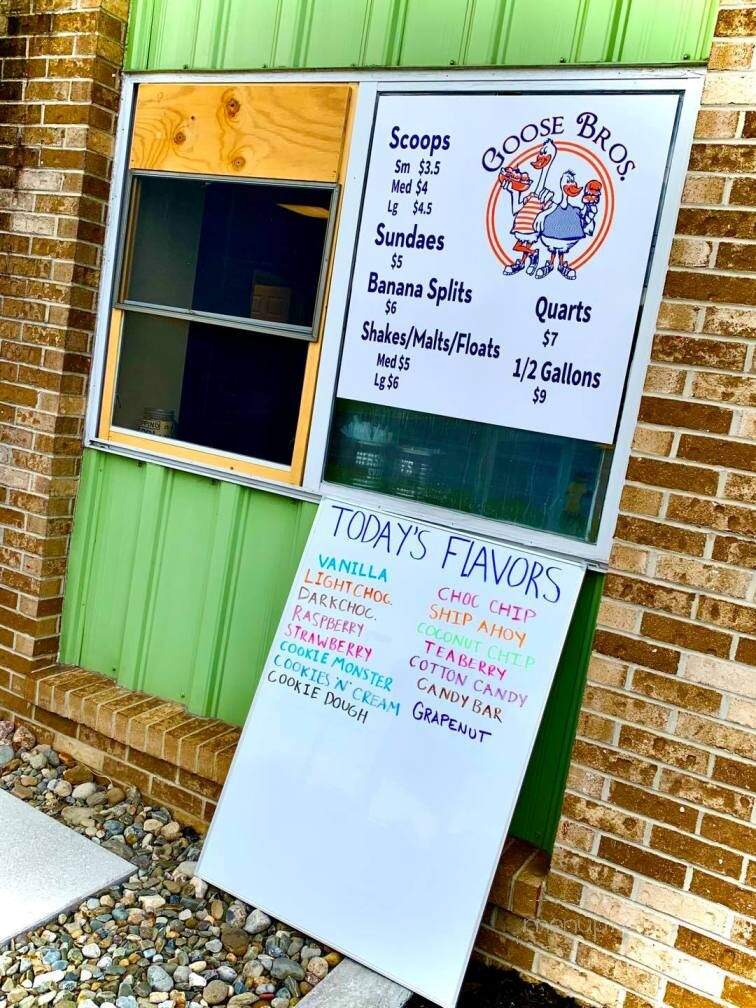 Scoops
Sm $3.5
Med $4
Lg $4.5
Sundaes
$5
Banana Splits
$6
Shakes/Malts/Floats
Med $5
Lg $6
GOOSE BROS.
Quarts
$7
1/2 Gallons
$9
TODAY'S FLAVORS
VANILLA
LIGHT CHOC.
DARK CHOC.
RASPBERRY
STRAWBERRY
COOKIE MONSTER
COOKIES 'N' CREAM
COOKIE DOUGH
CHOC CHIP
SHIP AHOY
COCONUT CHIP
TEABERRY
COTTON CANDY
CANDY BAR
GRAPENUT